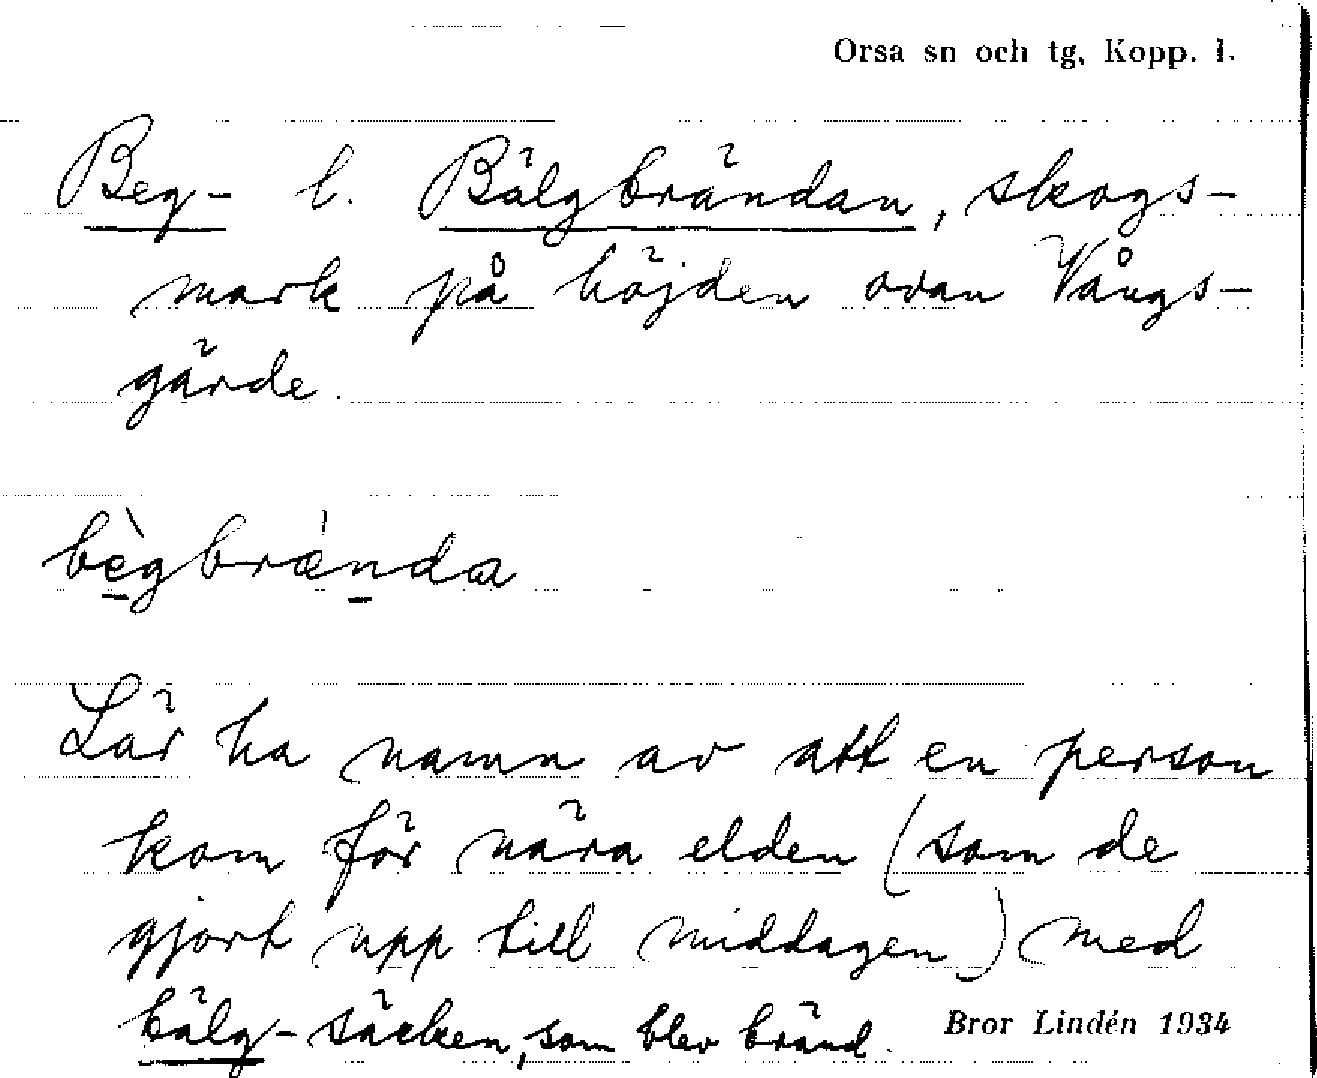 Orsa sn och tg, Kopp. l.
Beg- l. Bälgbrändan, skogs-
mark på höjden ovan Vångs-
gärde.
bègbrànda
Lär ha namn av att en person
kom för nära elden (som de
gjort upp till middagen) med
bälg-säcken, som blev bränd.
Bror Lindén 1934